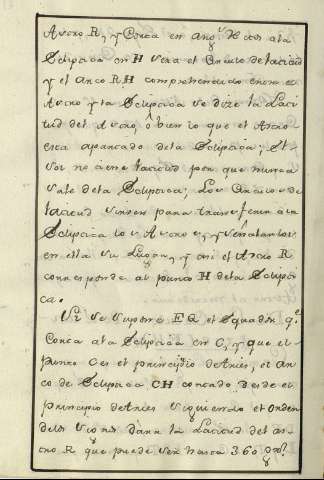 Astro R, y Corta en angs. Rectos ala
Ecliptica en H sera el Circulo de latitud
y el Arco RH comprehendido entre el
Astro y la Ecliptica se dize la Lati
tud del Astro, ô bien lo que el Astro
esta apartado dela Ecliptica; El
Sol no tiene latitud por que nunca
sale dela Ecliptica; Los Circulos de
latitud sirven para transferir ala
Ecliptica los Astros, y señalarlos
en ella su Lugar, y asi el Astro R
corresponde al punto H dela Eclipti
ca.
Si se supone EQ el Equador qe.
Corta ala Ecliptica en C, y que el
punto C es el principio de Aries, el Ar
co de Ecliptica CH contado desde el
principio de Aries siguiendo el Orden
delos signos dara la Latitud del as
tro R que puede ser hasta 360 gros.